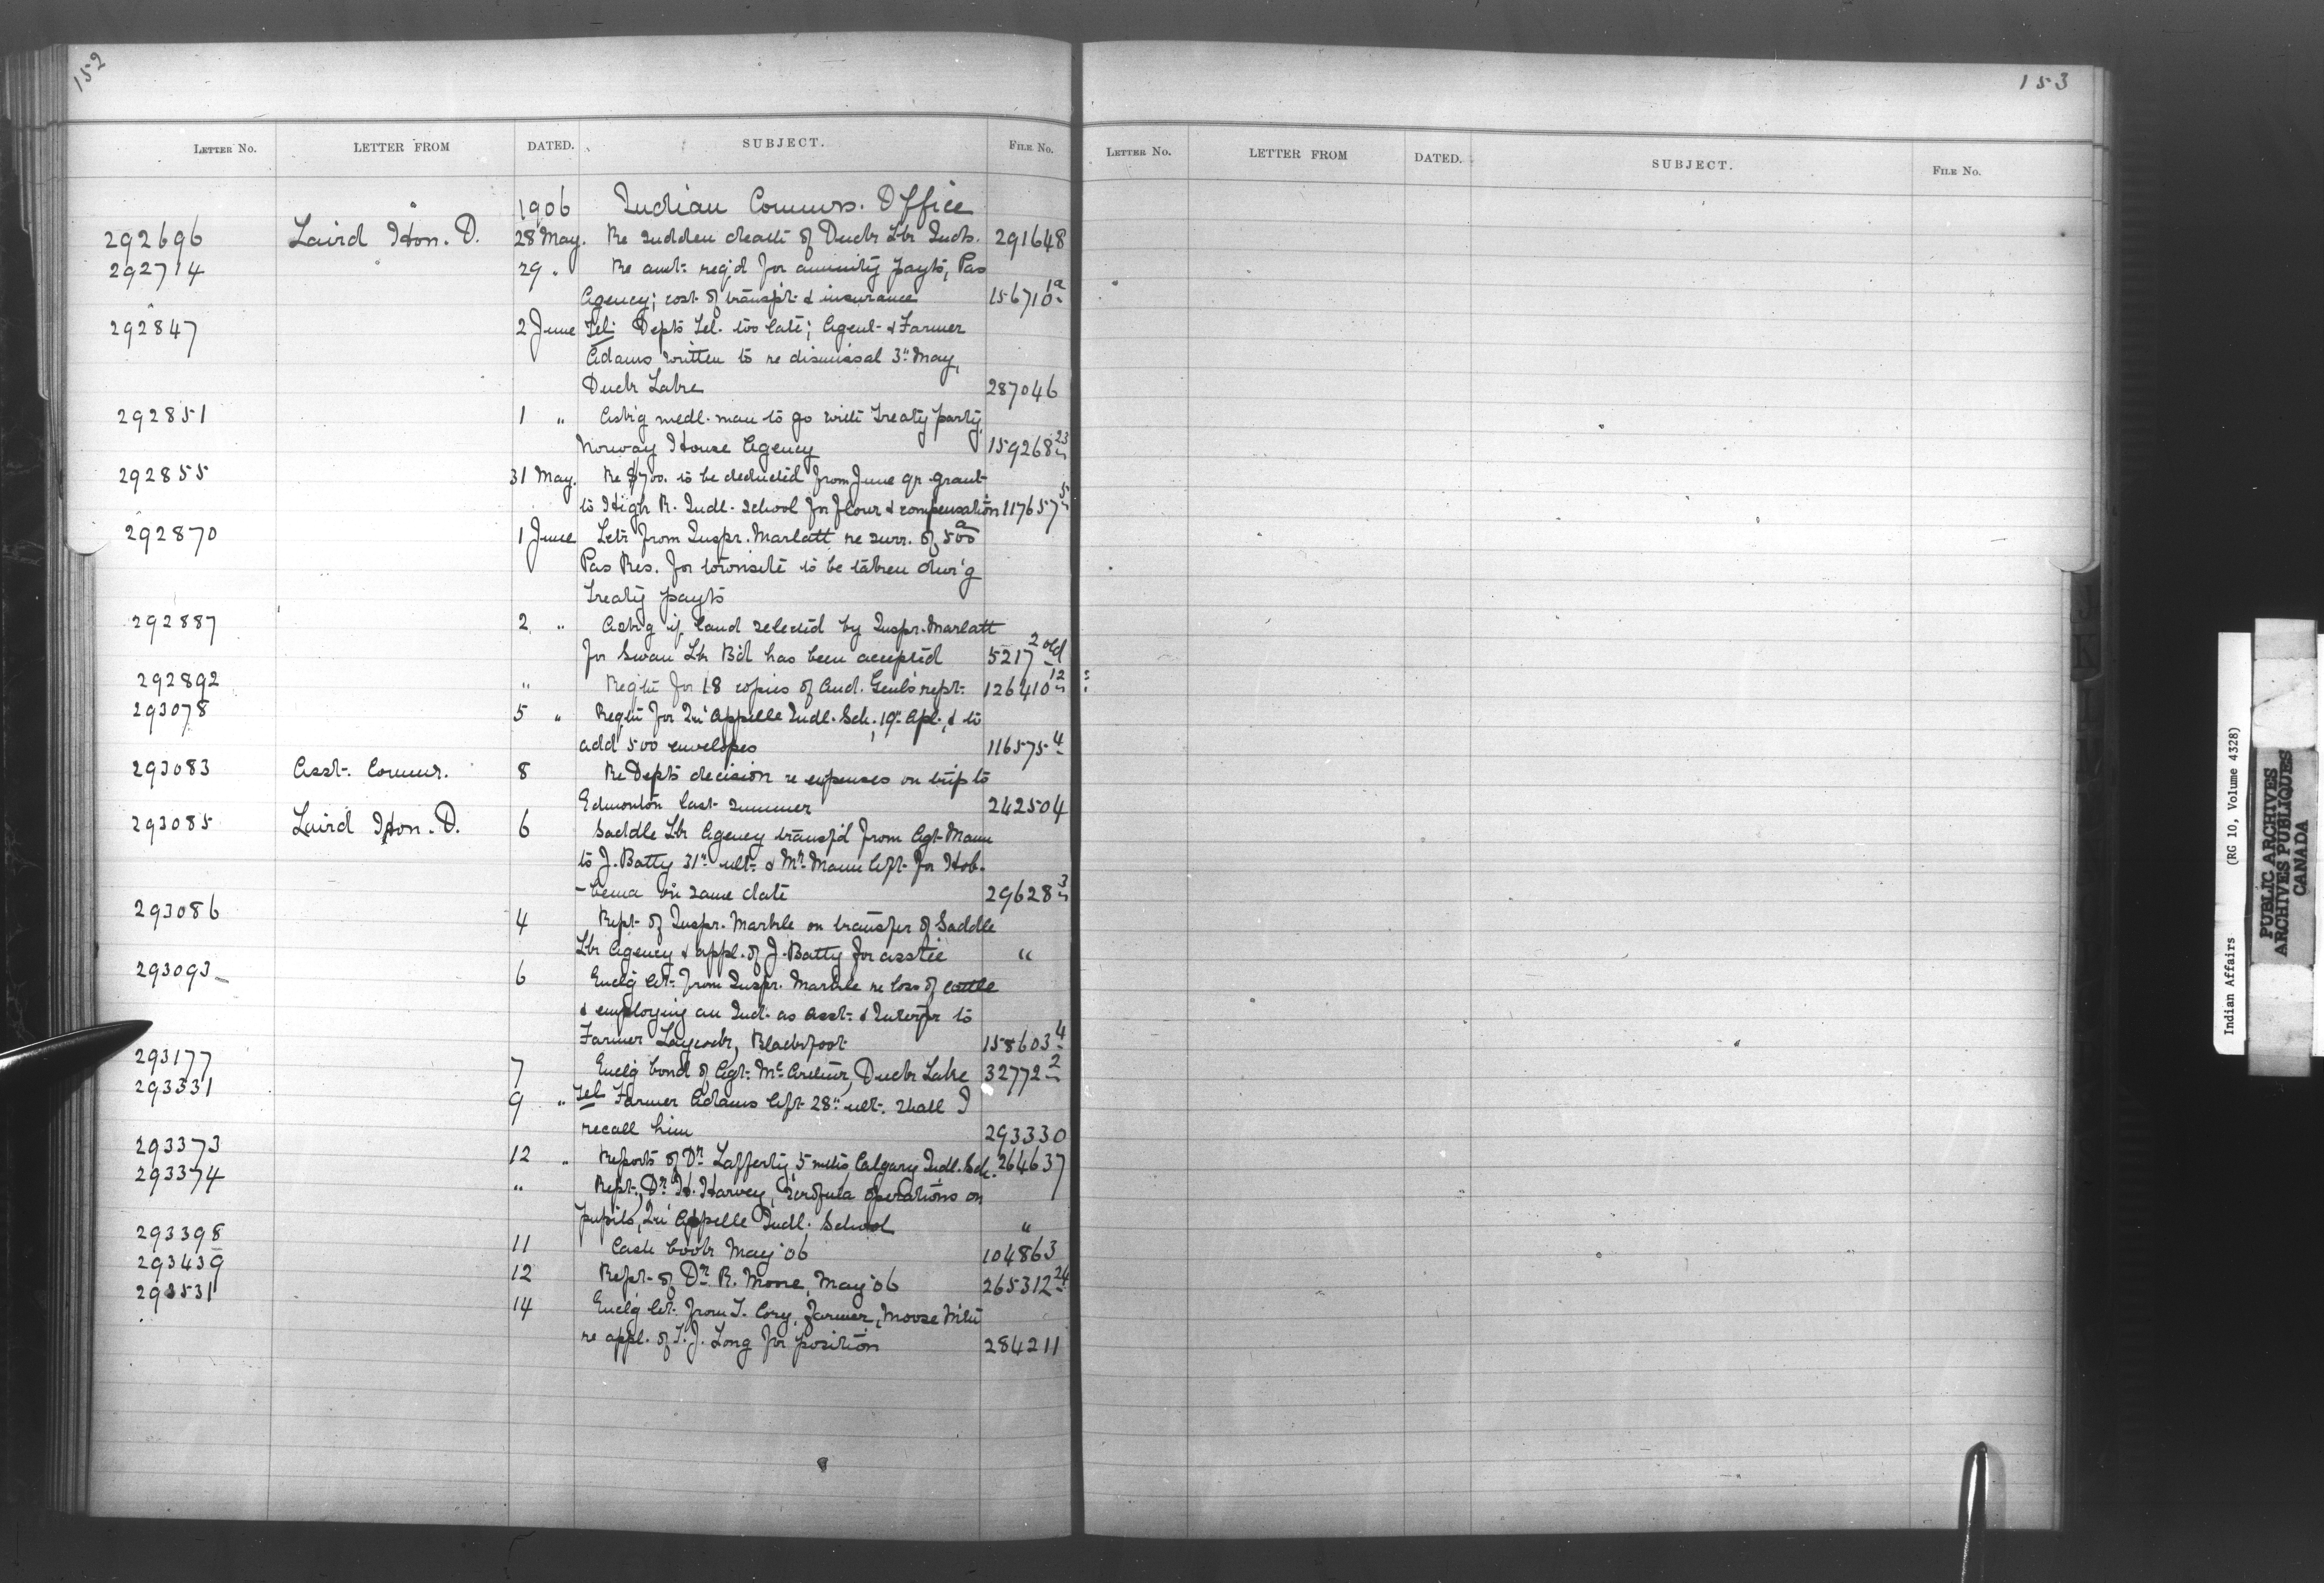 152
LETTER No. LETTER FROM DATED. SUBJECT. FILE No.
1906 Indian Commrs. Office
292696 Laird Hon. D. 28 May. Re sudden death of Duck Lk Inds. 291648
292714 29 " Re amt. req'd for annuity payts, Pas
Agency; cost of transp't & insurance 156710 1a
292847 2 June Tel. Depts Tel. too late; Agent & Farmer
Adams written to re dismissal 3" May,
Duck Lake 287046
292851 1 " Ask'g medl. man to go with Treaty party,
Norway House Agency 159268 23
292855 31 May. Re $700. to be deducted from June qr grant
to High R. Indl. School for flour & compensation 117657 5
292870 1 June Letr from Inspr. Marlatt re surr. of 500 a
Pas Res. for townsite to be taken dur'g
Treaty payts
292887 2 " Ask'g if land selected by Inspr. Marlatt
for Swan Lk Bd has been accepted 5217 2 old
292892 " Reqtn for 18 copies of Aud. Genls rept. 126410 12
293078 5 " Reqtn for Qu'Appelle Indl. Sch. 19" Apl., & to
add 500 envelopes 116575 4
293083 Asst. Commr. 8 Re Depts decision re expenses on trip to
Edmonton last summer 242504
293085 Laird Hon. D. 6 Saddle Lk Agency transf'd from Agt Mann
to J. Batty 31" ult. & Mr. Mann left for Hob-
-bema on same date 29628 3
293086 4 Rept. of Inspr. Markle on transfer of Saddle
Lk Agency & appl. of J. Batty for asstce "
293093 6 Enclg let. from Inspr. Markle re loss of cattle
& employing an Ind. as Asst. & Interpr to
Farmer Laycock, Blackfoot 158603 4
293177 7 Enclg bond of Agt. McArthur, Duck Lake 32772 2
293331 9 " Tel Farmer Adams left 28" ult. shall I
recall him 293330
293373 12 " Reports of Dr. Lafferty, 5 mths, Calgary Indl. Sch. 264637
293374 " Rept., Dr. H. Harvey, scrofula operations on
pupils, Qu'Appelle Indl. School "
293398 11 Cash book May '06 104863
293439 12 Rept. of Dr. R. Moore, May '06 265312 24
293531 14 Enclg let. from T. Cory, farmer, Moose Mtn
re appl. of T. J. Long for position 284211
153
LETTER No. LETTER FROM DATED. SUBJECT. FILE No.
J
K
L
Indian Affairs (RG 10, Volume 4328)
PUBLIC ARCHIVES
ARCHIVES PUBLIQUES
CANADA